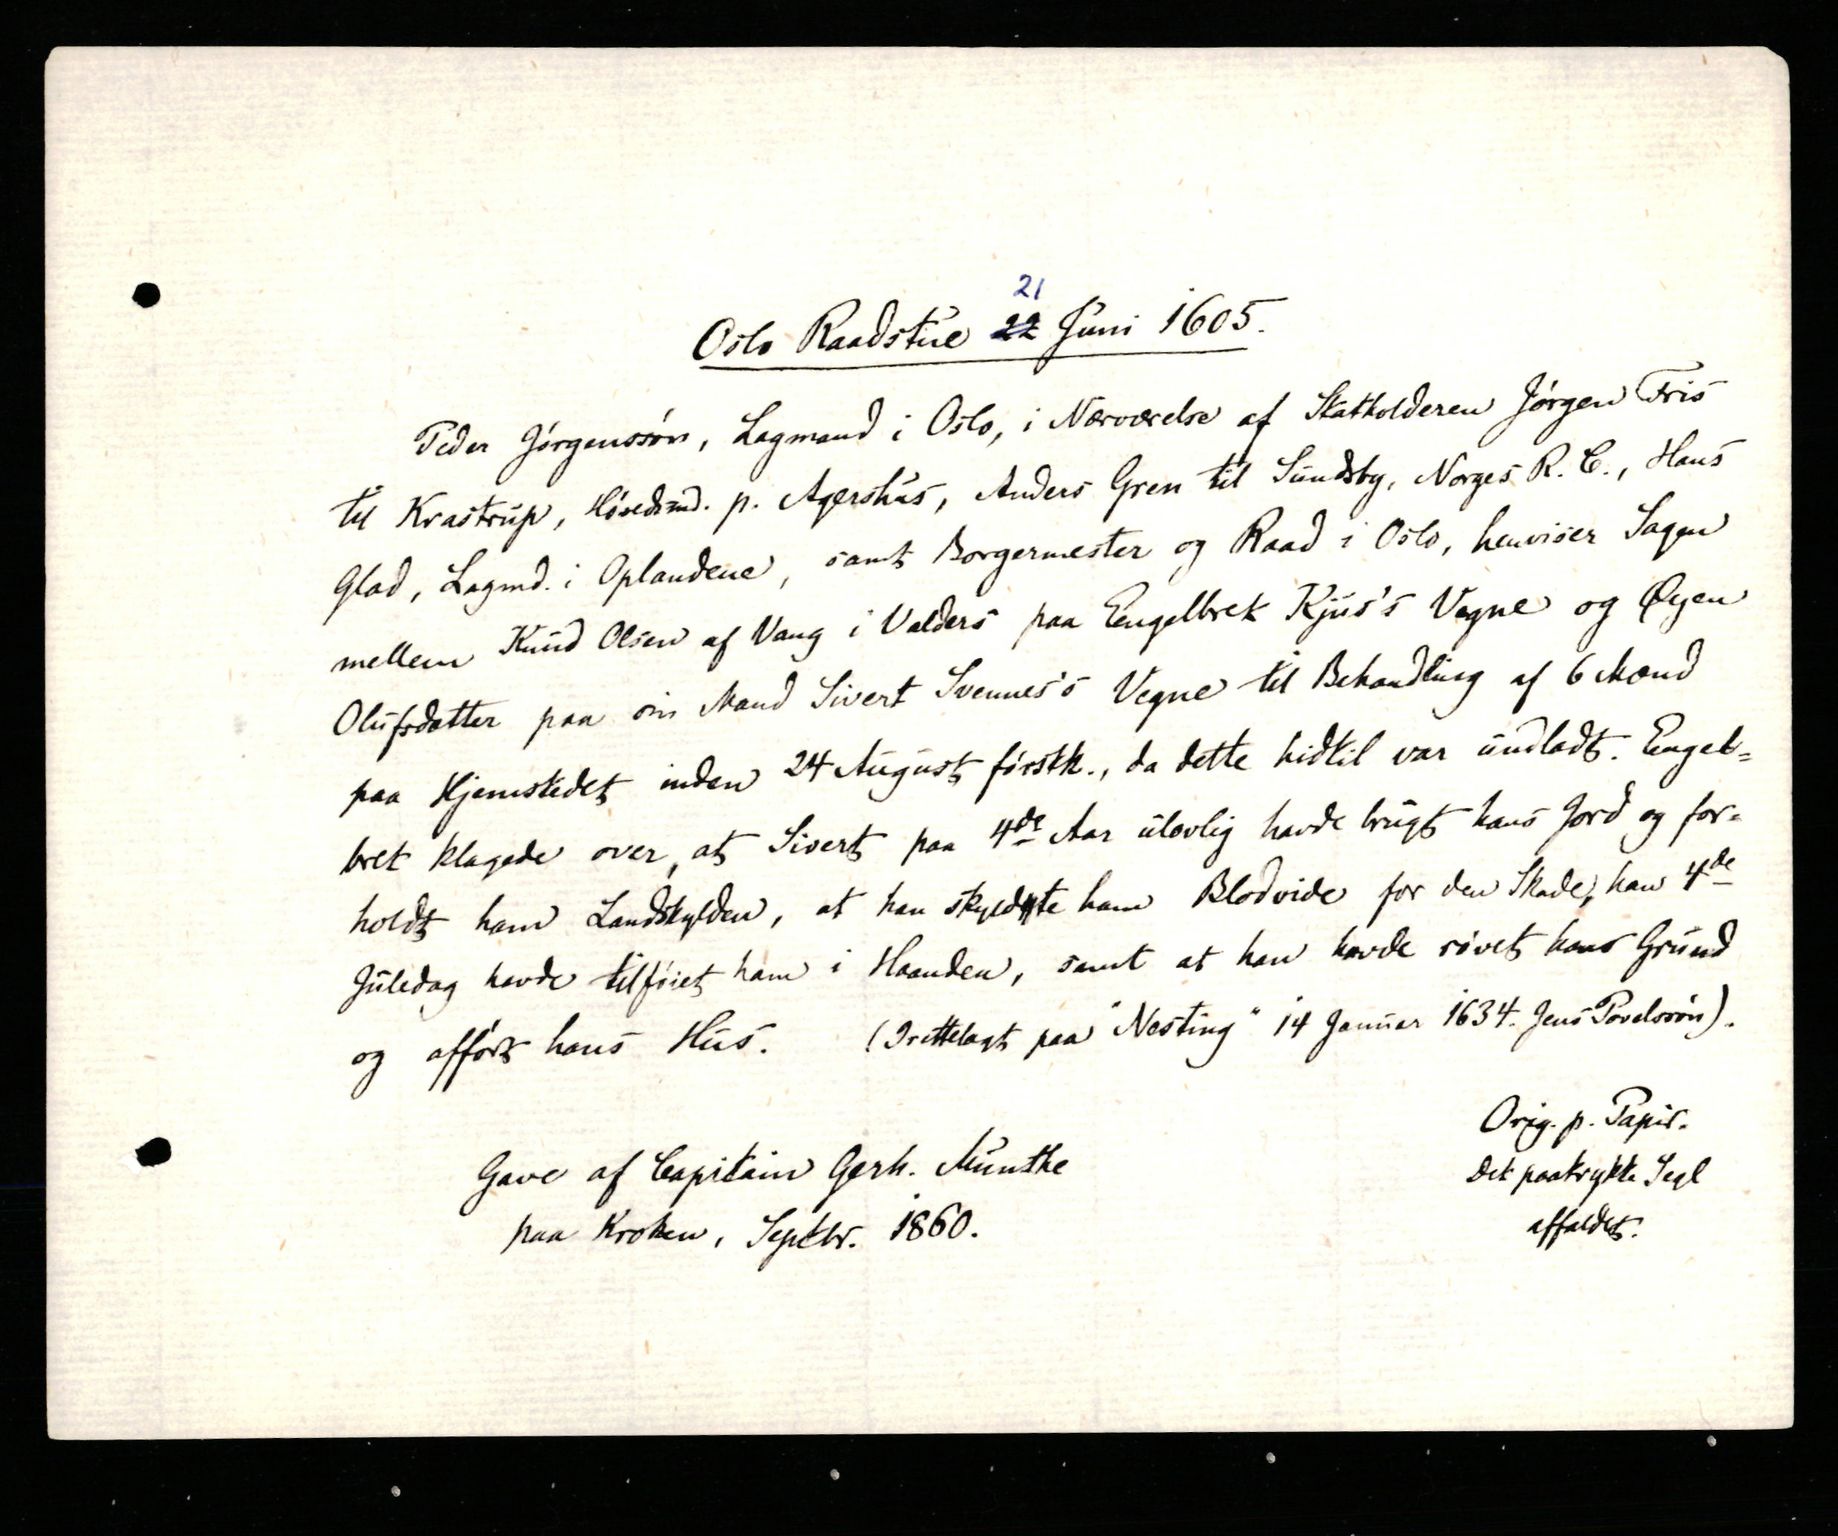 21
Oslo Raadstue 22 Juni 1605.
Peder Jörgenssön, Lagmand i Oslo, i Nærværelse af Statholderen Jörgen Fris
til Krastrup, Hövedsmd. p. Agershus, Anders Gren til Sundsby, Norges R. C., Hans
Glad, Lagmd. i Oplandene, samt Borgermester og Raad i Oslo, henviser Sagen
mellem Knud Olsen af Vang i Valders paa Engelbrek Kjus's Vegne og Öyen
Olufsdatter paa sin Mand Sivert Svennes's Vegne til Behandling af 6 Mænd
paa Hjemstedet inden 24 August förstk., da dette hidtil var undladt. Engel=
bret klagede over, at Sivert paa 4de Aar ulovlig havde brugt hans Jord og for=
holdt ham Landskylden, at han skyldte ham Blodvide for den Skade, han 4de
Juledag havde tilföiet ham i Haanden, samt at han havde rövet hans Grund
og affört hans Hus. (Irettelagt paa "Nesting" 14 Januar 1634. Jens Povelssön).
Orig. p. Papir.
Det paatrykte Segl
affaldet.
Gave af Capitain Gerh. Munthe
paa Kroken, Septbr. 1860.